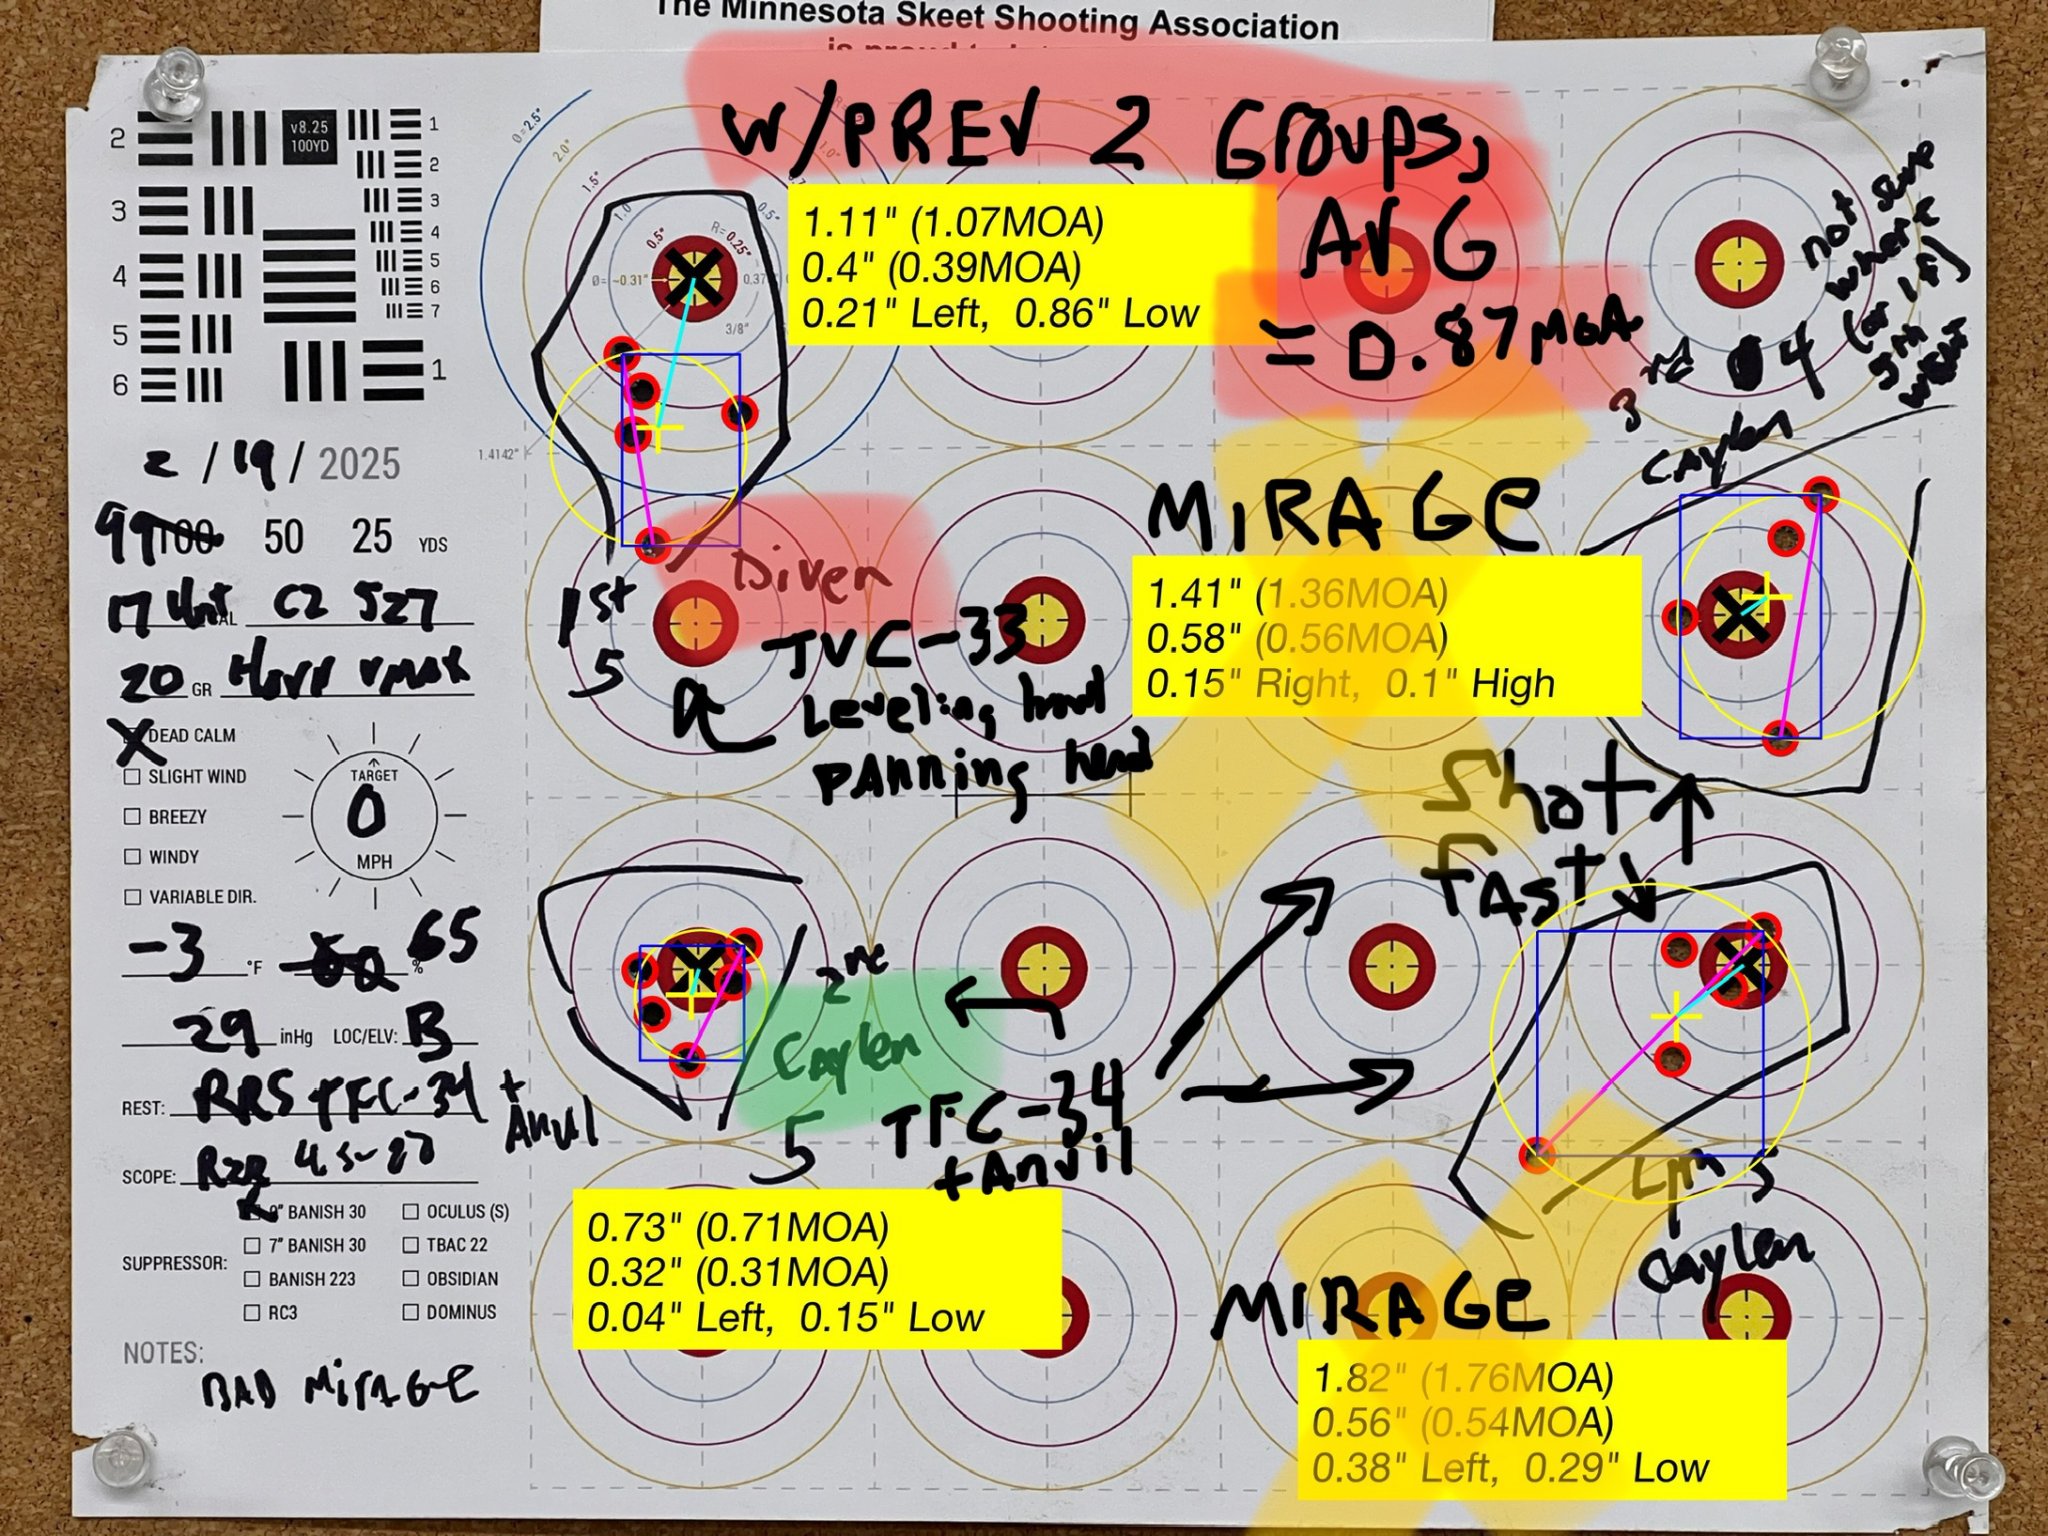 The Minnesota Skeet Shooting Association
W/PREV 2 Groups,
AVG
= 0.87MOA
1.11" (1.07MOA)
0.4" (0.39MOA)
0.21" Left, 0.86" Low
v8.25
100YD
2
3
4
5
6
1
2
3
4
5
6
7
1
Ø=2.5"
2.0"
1.5"
1.0"
0.5"
R=0.25"
0.5"
3/8"
1.4142"
not sure
where
3rd 04
Caylen
2 / 19 / 2025
99 100 50 25 YDS
17 Hnt CZ 527
20 GR Horn VMAX
X DEAD CALM
SLIGHT WIND
BREEZY
WINDY
VARIABLE DIR.
TARGET
0
MPH
-3 °F 65 %
29 inHg LOC/ELV: B
REST: RRS TFC-34 + Anvil
SCOPE: Rzr 4.5-27
SUPPRESSOR:
9" BANISH 30
OCULUS (S)
7" BANISH 30
TBAC 22
BANISH 223
OBSIDIAN
RC3
DOMINUS
NOTES:
BAD MIRAGE
Diven
1st
5
TVC-33
Leveling bowl
panning head
MIRAGE
1.41" (1.36MOA)
0.58" (0.56MOA)
0.15" Right, 0.1" High
Shot
FAST
2nd
Caylen
5
TFC-34
+Anvil
0.73" (0.71MOA)
0.32" (0.31MOA)
0.04" Left, 0.15" Low
5
Caylen
MIRAGE
1.82" (1.76MOA)
0.56" (0.54MOA)
0.38" Left, 0.29" Low